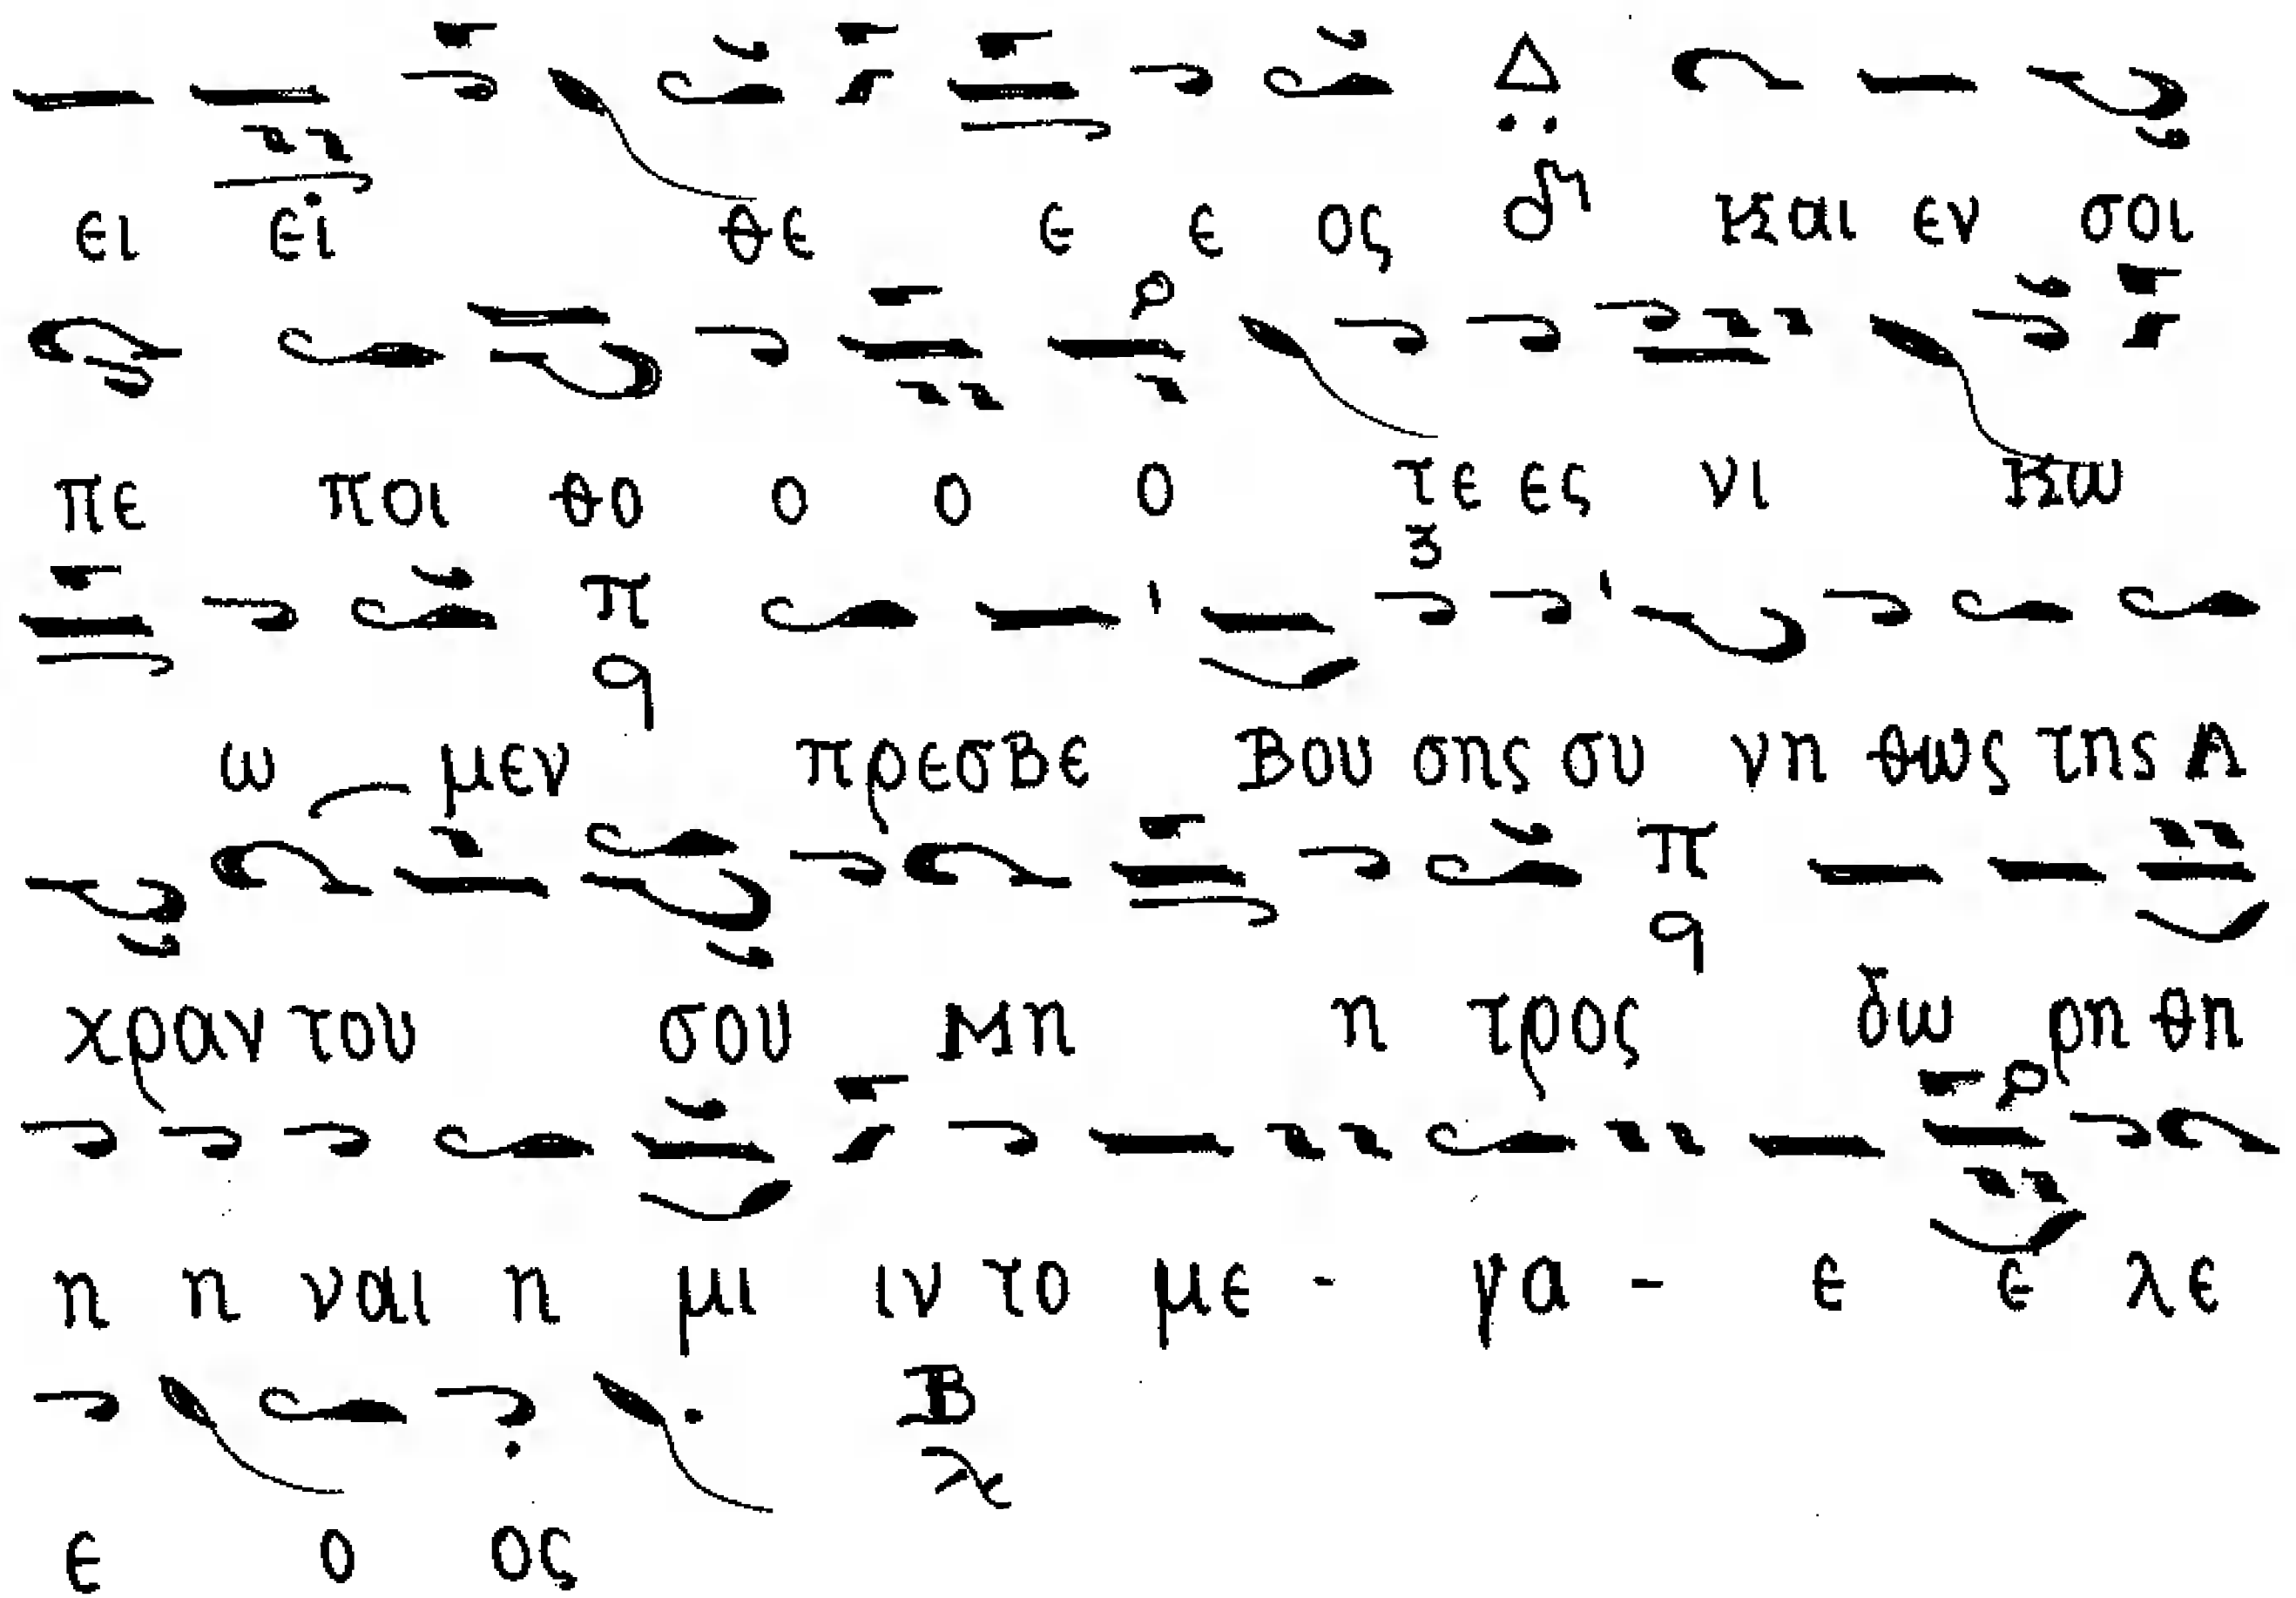 ει ει θε ε ε ος Δ δι και εν σοι
πε ποι θο ο ο ο τε ες νι κω
ω μεν π q πρεσβε βου σης συ νη θως της Α
χραν του σου Μη η τρος π q δω ρη θη
η η ναι η μι ιν το με - γα - ε ε λε
ε ο ος Β